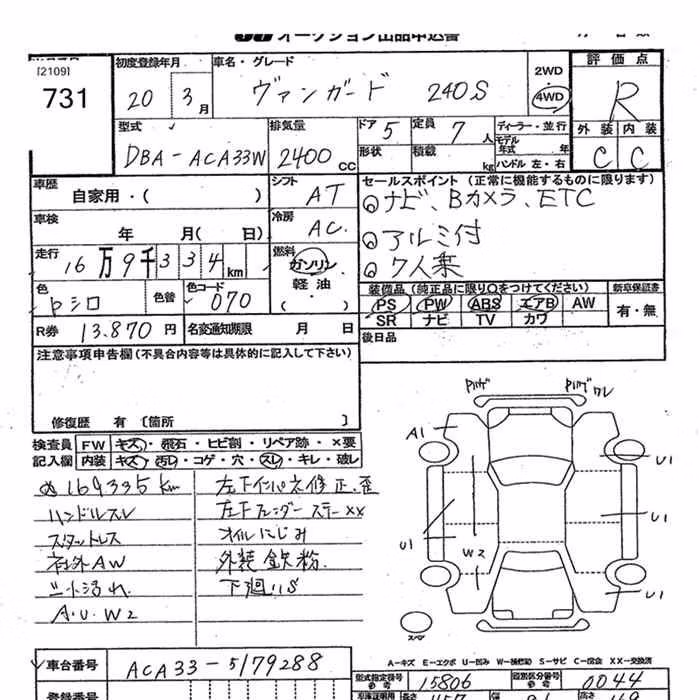 オークション出品申込書
[2109]
731
初度登録年月
20 3月
車名・グレード
ヴァンガード 240S
2WD
4WD
評価点
R
外装 内装
C C
型式
DBA-ACA33W
排気量
2400CC
ドア 5
形状
定員 7人
積載 kg
ディーラー・並行
モデル年式 年
ハンドル 左・右
車歴
自家用・( )
シフト AT
車検
年 月( 日)
冷房 AC
走行
16万9千334km
燃料
ガソリン
軽油
( ・ )
色
パシロ
色替
色コード 070
R券 13.870円
名変通知期限 月 日
セールスポイント (正常に機能するものに限ります)
ナビ、Bカメラ、ETC
アルミ付
7人乗
装備品(純正品に限り○をつけてください)
PS PW ABS エアB AW
SR ナビ TV カワ
新車保証書
有・無
後日品
注意事項申告欄(不具合内容等は具体的に記入して下さい)
修復歴 有 〔箇所 〕
検査員記入欄
FW キズ・飛石・ヒビ割・リペア跡・×要
内装 キズ・汚レ・コゲ・穴・スレ・キレ・破レ
169335km
ハンドルスレ
スタットレス
社外AW
シート汚れ
A.U.W2
左下インパネ修正、歪
左下フェンダーステーXX
オイルにじみ
外装鉄粉
下廻りS
バリゲ
バリゲ ワレ
A1
U1
U1
U1
W2
U1
スペア
A-キズ E-エクボ U-凹み W-補修跡 S-サビ C-腐食 XX-交換済
車台番号
ACA33-5179288
型式指定番号
15806
類別区分番号
0044
登録番号